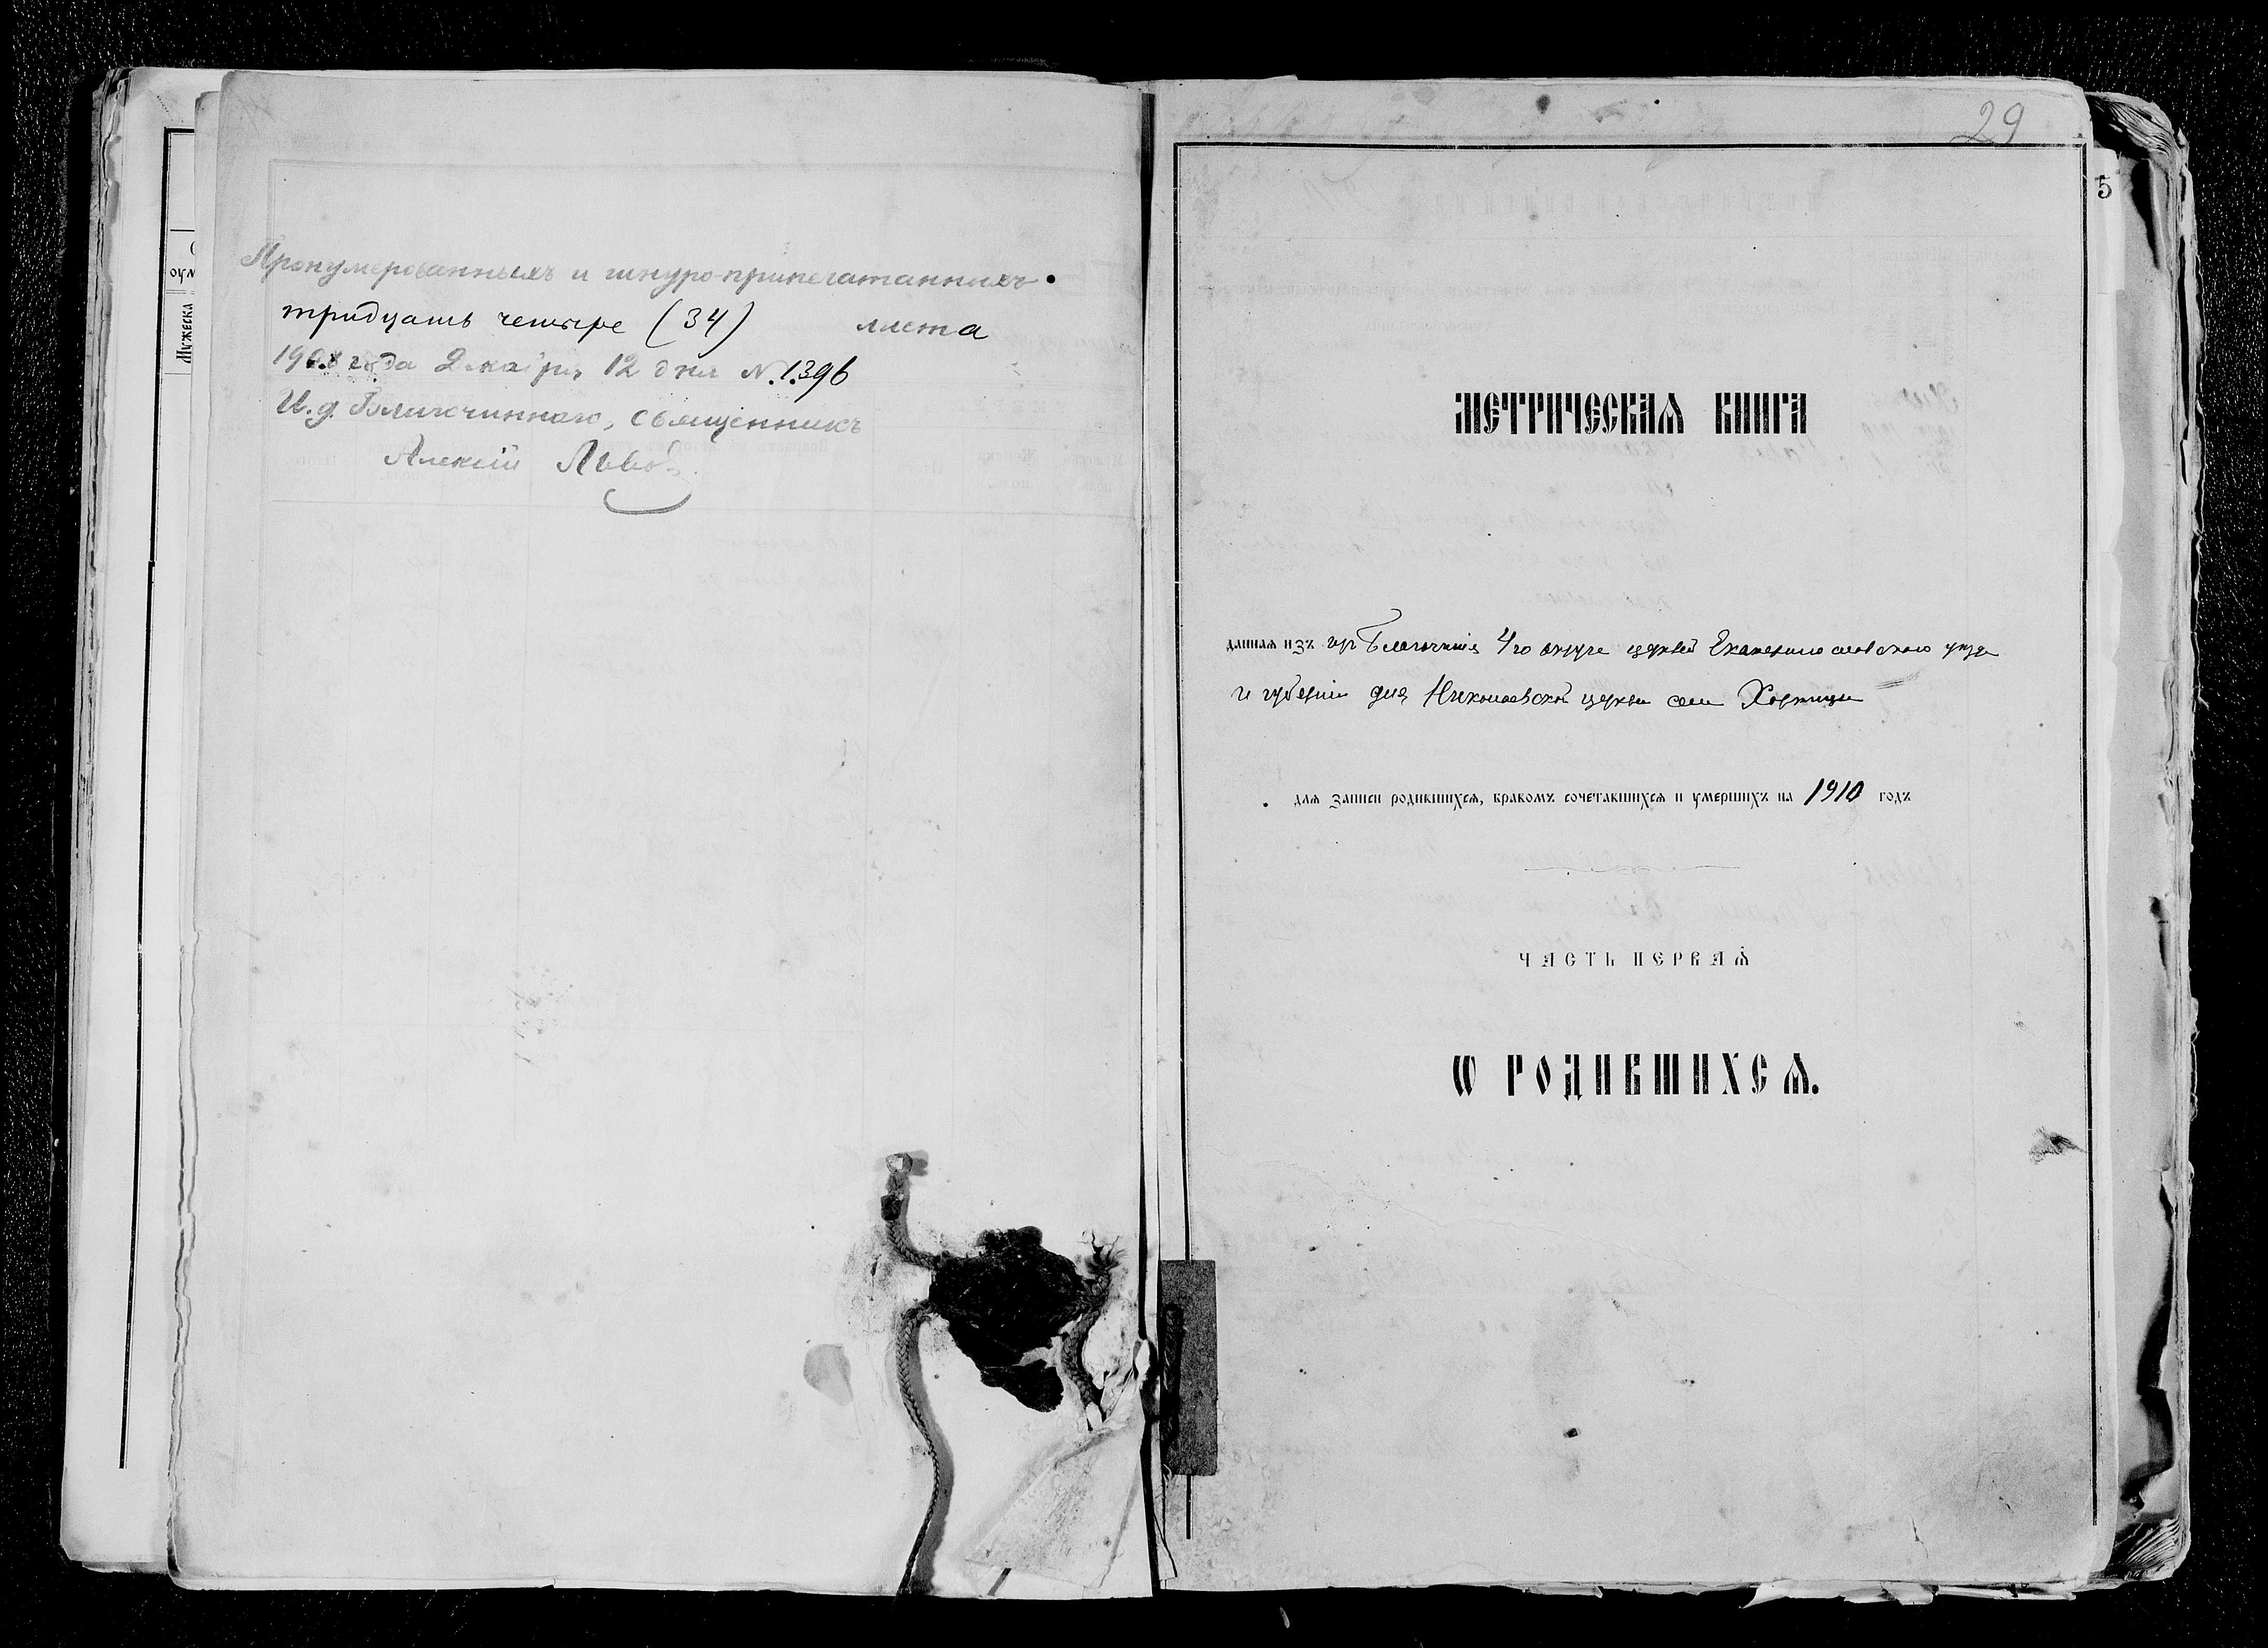 Пронумерованныхъ и шнуро-припечатанныхъ
тридцать четыре (34) листа
года Декабря 12 дня №. 1396
И. д. Благочиннаго, священникъ
Алексій Львовъ
Мужеска
29
5
МЕТРИЧЕСКАѦ КНИГА
даннаѧ изъ Благочинія 4го округа церквей Екатеринославскаго уезда
и губерніи для Николаевской церкви села Хортицы
длѧ записи родившихсѧ, бракомъ сочетавшихсѧ и умершихъ на 1910 годъ
ЧАСТЬ ПЕРВАѦ
Ѡ РОДИВШИХСѦ.